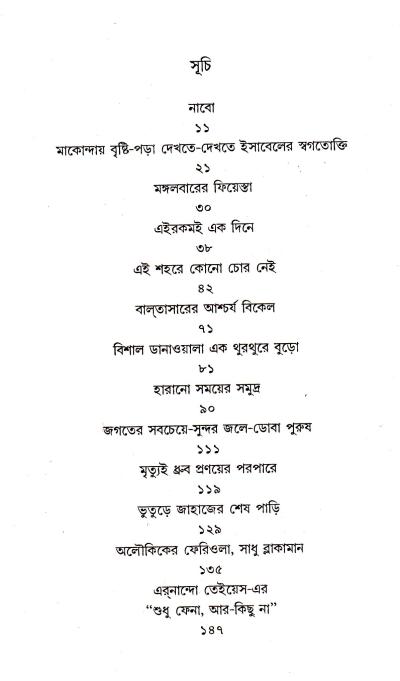 সূচি
নাবো
১১
মাকোন্দায় বৃষ্টি-পড়া দেখতে-দেখতে ইসাবেলের স্বগতোক্তি
২১
মঙ্গলবারের ফিয়েস্তা
৩০
এইরকমই এক দিনে
৩৮
এই শহরে কোনো চোর নেই
৪২
বাল্‌তাসারের আশ্চর্য বিকেল
৭১
বিশাল ডানাওয়ালা এক থুরথুরে বুড়ো
৮১
হারানো সময়ের সমুদ্র
৯০
জগতের সবচেয়ে-সুন্দর জলে-ডোবা পুরুষ
১১১
মৃত্যুই ধ্রুব প্রণয়ের পরপারে
১১৯
ভুতুড়ে জাহাজের শেষ পাড়ি
১২৯
অলৌকিকের ফেরিওলা, সাধু ব্লাকামান
১৩৫
এর্‌নান্দো তেইয়েস-এর
“শুধু ফেনা, আর-কিছু না”
১৪৭